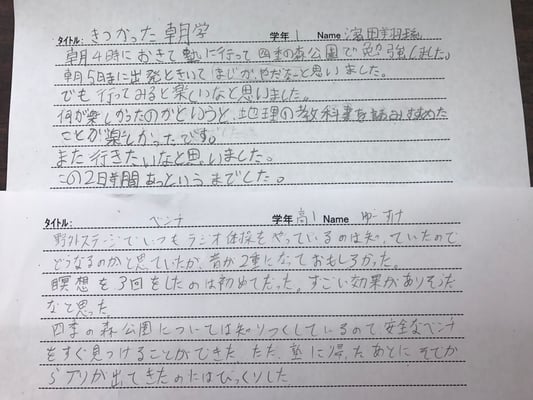 タイトル: きつかった朝学 学年 1 Name 濱田
朝4時におきて塾に行って四季の森公園で勉強しました。
朝5時に出発ときいてはじめ、やだなーと思いました。
でも行ってみると楽しいなと思いました。
何が楽しかったのかというと、地理の教科書を読みすすめた
ことが楽しかったです。
また行きたいなと思いました。
この2日時間あっというまでした。
タイトル: ベンチ 学年 高1 Name ゆーすけ
野外ステージでいつもラジオ体操をやっているのは知っていたので
どうなるのかと思っていたが、音が2重になっておもしろかった。
瞑想を3回をしたのは初めてだった。すごい効果がありそうだ
なと思った。
四季の森公園については知りつくしているので、安全なベンチ
をすぐ見つけることができた。ただ、塾に帰ったあとにそでか
らブリが出てきたのにはびっくりした